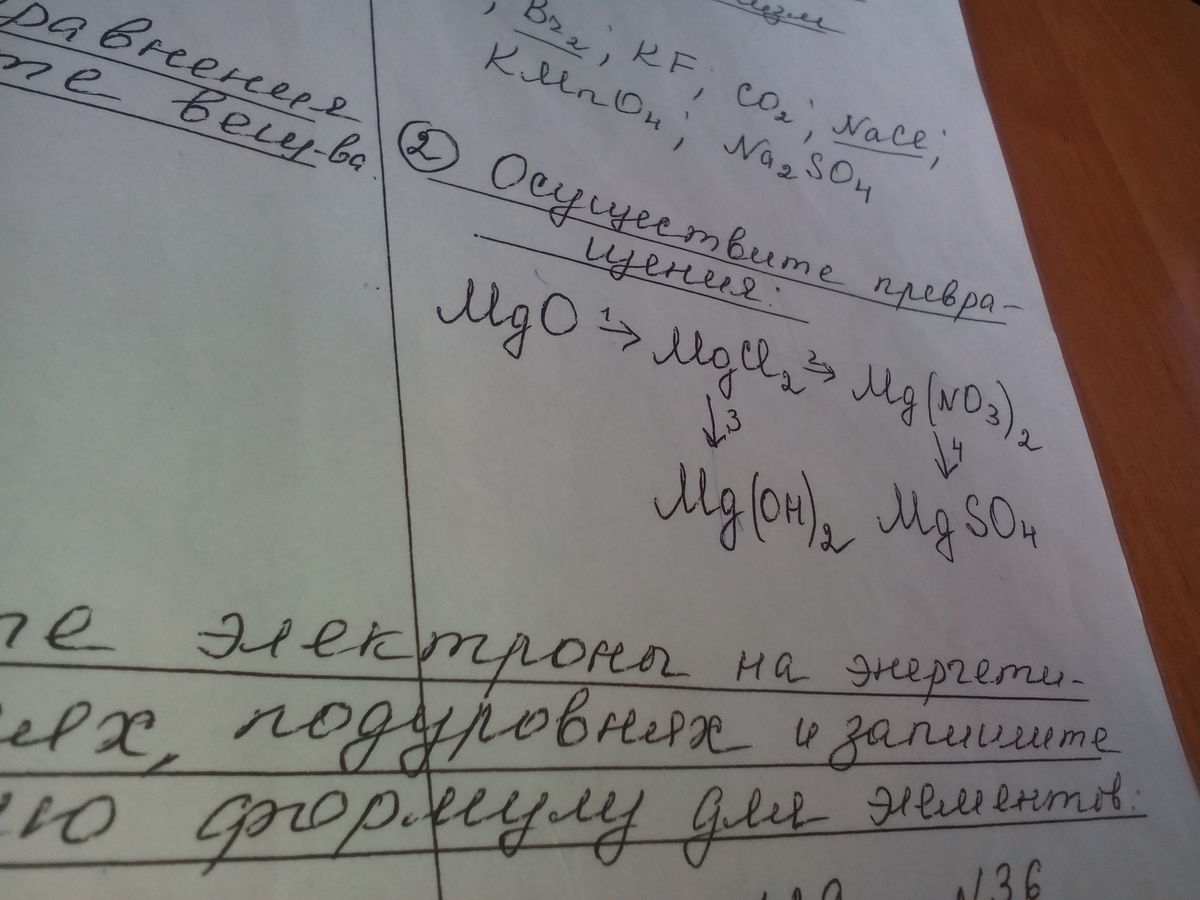 равнения
те вещ-ва.
, Br₂; KF; CO₂; NaCl;
KMnO₄; Na₂SO₄
② Осуществите превра-
щения:
MgO ¹→ MgCl₂ ²→ Mg(NO₃)₂
↓3 ↓4
Mg(OH)₂ MgSO₄
те электроны на энергети-
нях, подуровнях и запишите
ую формулу для элементов:
N36